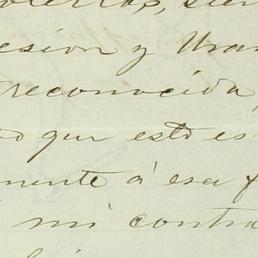 esion y Uran
reconocida,
o que esto es
mente á esa f
mi contra